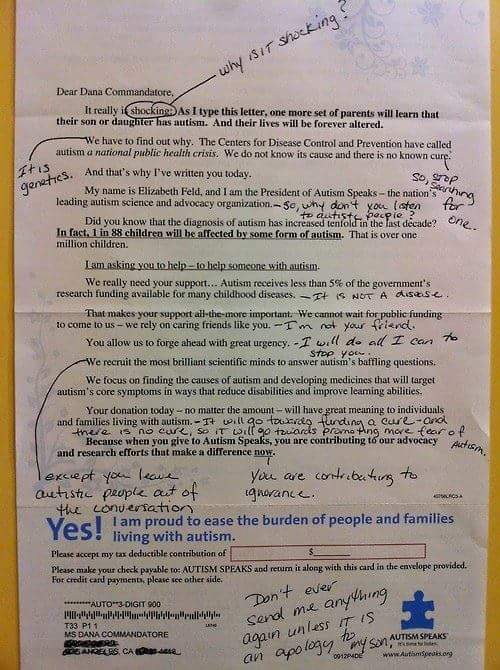 why is it shocking?
Dear Dana Commandatore,
It really is shocking: As I type this letter, one more set of parents will learn that
their son or daughter has autism. And their lives will be forever altered.
We have to find out why. The Centers for Disease Control and Prevention have called
autism a national public health crisis. We do not know its cause and there is no known cure.
It is
genetics.
So, stop
searching
for
one.
And that's why I've written you today.
My name is Elizabeth Feld, and I am the President of Autism Speaks – the nation's
leading autism science and advocacy organization. – So, why don't you listen
to autistic people?
Did you know that the diagnosis of autism has increased tenfold in the last decade?
In fact, 1 in 88 children will be affected by some form of autism. That is over one
million children.
I am asking you to help – to help someone with autism.
We really need your support... Autism receives less than 5% of the government's
research funding available for many childhood diseases. – It is NOT A disease.
That makes your support all-the-more important. We cannot wait for public funding
to come to us – we rely on caring friends like you. – I'm not your friend.
You allow us to forge ahead with great urgency. – I will do all I can to
stop you.
We recruit the most brilliant scientific minds to answer autism's baffling questions.
We focus on finding the causes of autism and developing medicines that will target
autism's core symptoms in ways that reduce disabilities and improve learning abilities.
Your donation today – no matter the amount – will have great meaning to individuals
and families living with autism. – It will go towards funding a cure – and
there is no cure, so it will go towards promoting more fear of
Autism.
Because when you give to Autism Speaks, you are contributing to our advocacy
and research efforts that make a difference now.
except you leave
autistic people out of
the conversation
You are contributing to
ignorance.
Yes! I am proud to ease the burden of people and families
living with autism.
Please accept my tax deductible contribution of $
Please make your check payable to: AUTISM SPEAKS and return it along with this card in the envelope provided.
For credit card payments, please see other side.
Don't ever
send me anything
again unless it is
an apology to my son.
**AUTO**3-DIGIT 900
T33 P1 1
MS DANA COMMANDATORE
LOS ANGELES, CA
0912P4DE
AUTISM SPEAKS
It's time to listen.
www.AutismSpeaks.org